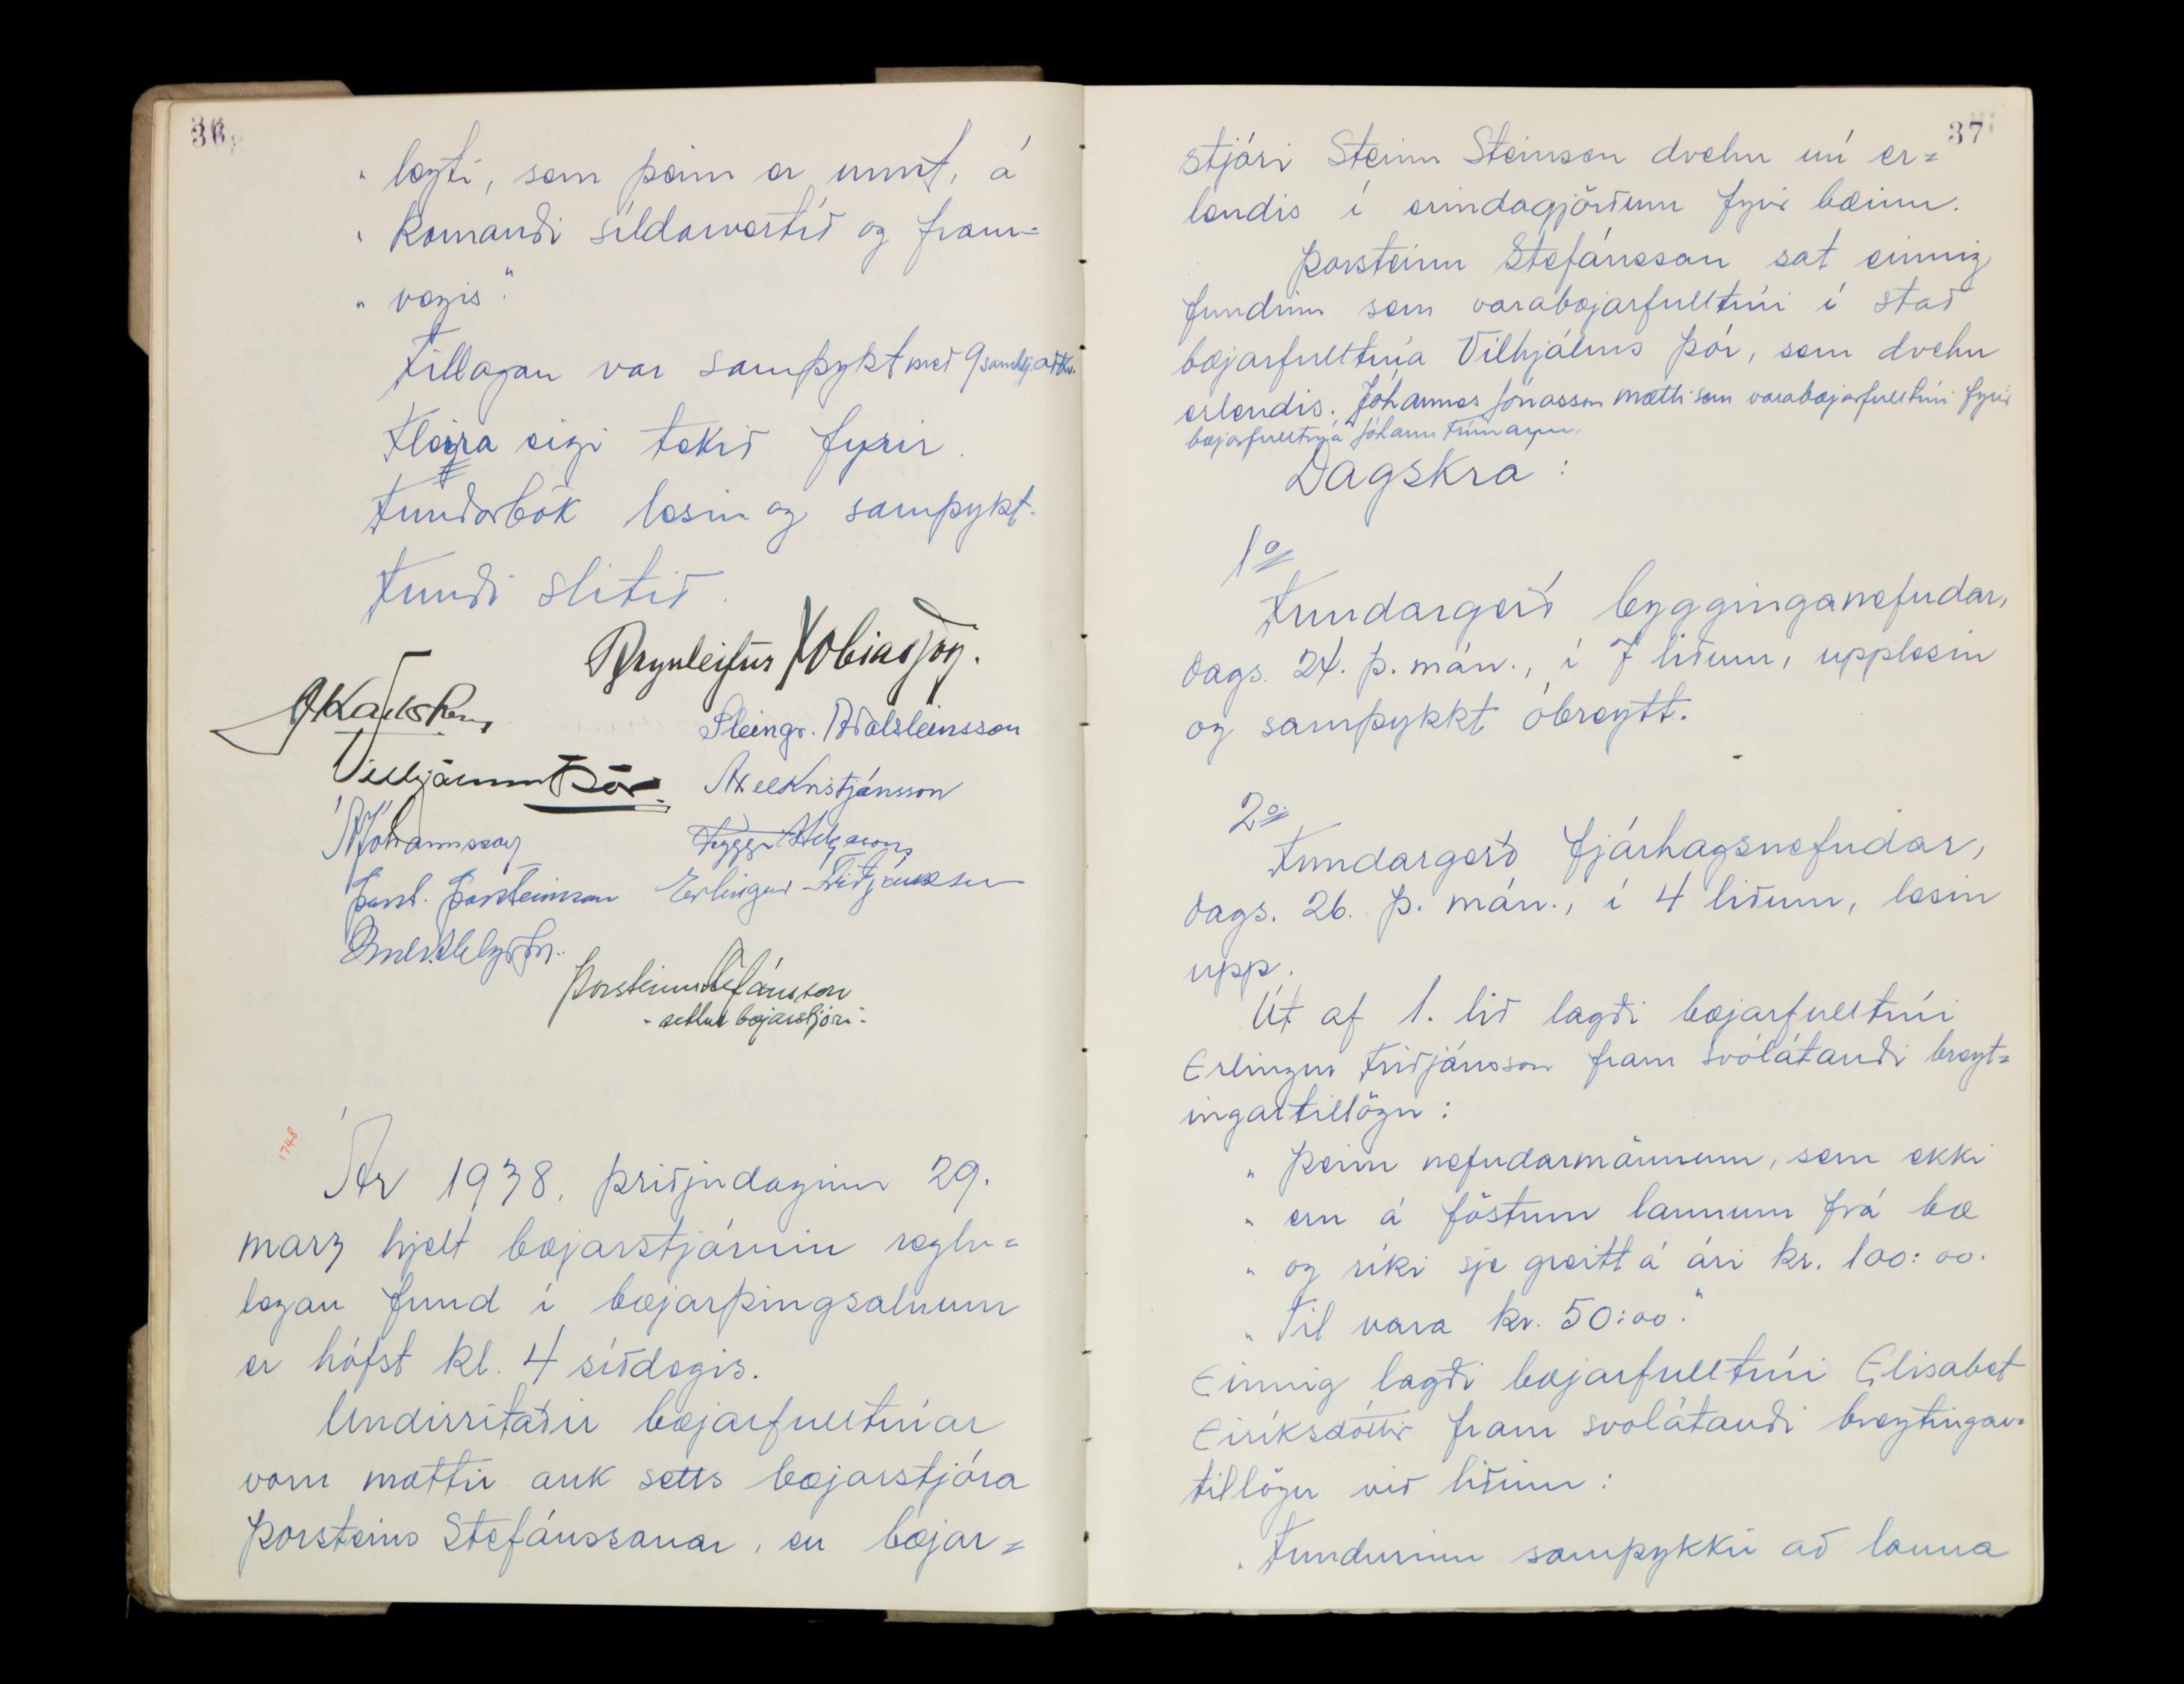 36
„ leyti, sem þeim er unnt, á
„ komandi síldarvertíð og fram-
„ vegis“.
Tillagan var samþykt með 9 samhlj. atkv.
Fleira eigi tekið fyrir.
Fundarbók lesin og samþykt.
Fundi slitið.
Brynleifur Tobiasson.
Steingr. Aðalsteinsson
Vilhjálmur Þór.
Axel Kristjánsson
Jóhannsson
Tryggvi Helgason
Þorst. Þorsteinsson
Erlingur Friðjónsson
Þorsteinn Stefánsson
- settur bæjarstjóri -
1748
Ár 1938, þriðjudaginn 29.
marz hjelt bæjarstjórnin reglu=
legan fund í bæjarþingsalnum
er hófst kl. 4 síðdegis.
Undirritaðir bæjarfulltrúar
voru mættir auk setts bæjarstjóra
Þorsteins Stefánssonar, en bæjar=
37
stjóri Steinn Steinsen dvelur nú er=
lendis í erindagjörðum fyrir bæinn.
Þorsteinn Stefánsson sat einnig
fundinn sem varabæjarfulltrúi í stað
bæjarfulltrúa Vilhjálms Þór, sem dvelur
erlendis. Jóhannes Jónasson mætti sem varabæjarfulltrúi fyrir
bæjarfulltrúa Jóhann Frímann.
Dagskrá:
1o
Fundargerð bygginganefndar,
dags. 24. þ. mán., í 7 liðum, upplesin
og samþykkt óbreytt.
2o
Fundargerð fjárhagsnefndar,
dags. 26. þ. mán., í 4 liðum, lesin
upp.
Út af 1. lið lagði bæjarfulltrúi
Erlingur Friðjónsson fram svólátandi breyt=
ingartillögu:
„ Þeim nefndarmönnum, sem ekki
„ eru á föstum launum frá bæ
„ og ríki sje greitt á ári kr. 100:00.
„ Til vara kr. 50:00.“
Einnig lagði bæjarfulltrúi Elisabet
Eiríksdóttir fram svolátandi breytingar=
tillögu við liðinn:
„ Fundurinn samþykkir að launa